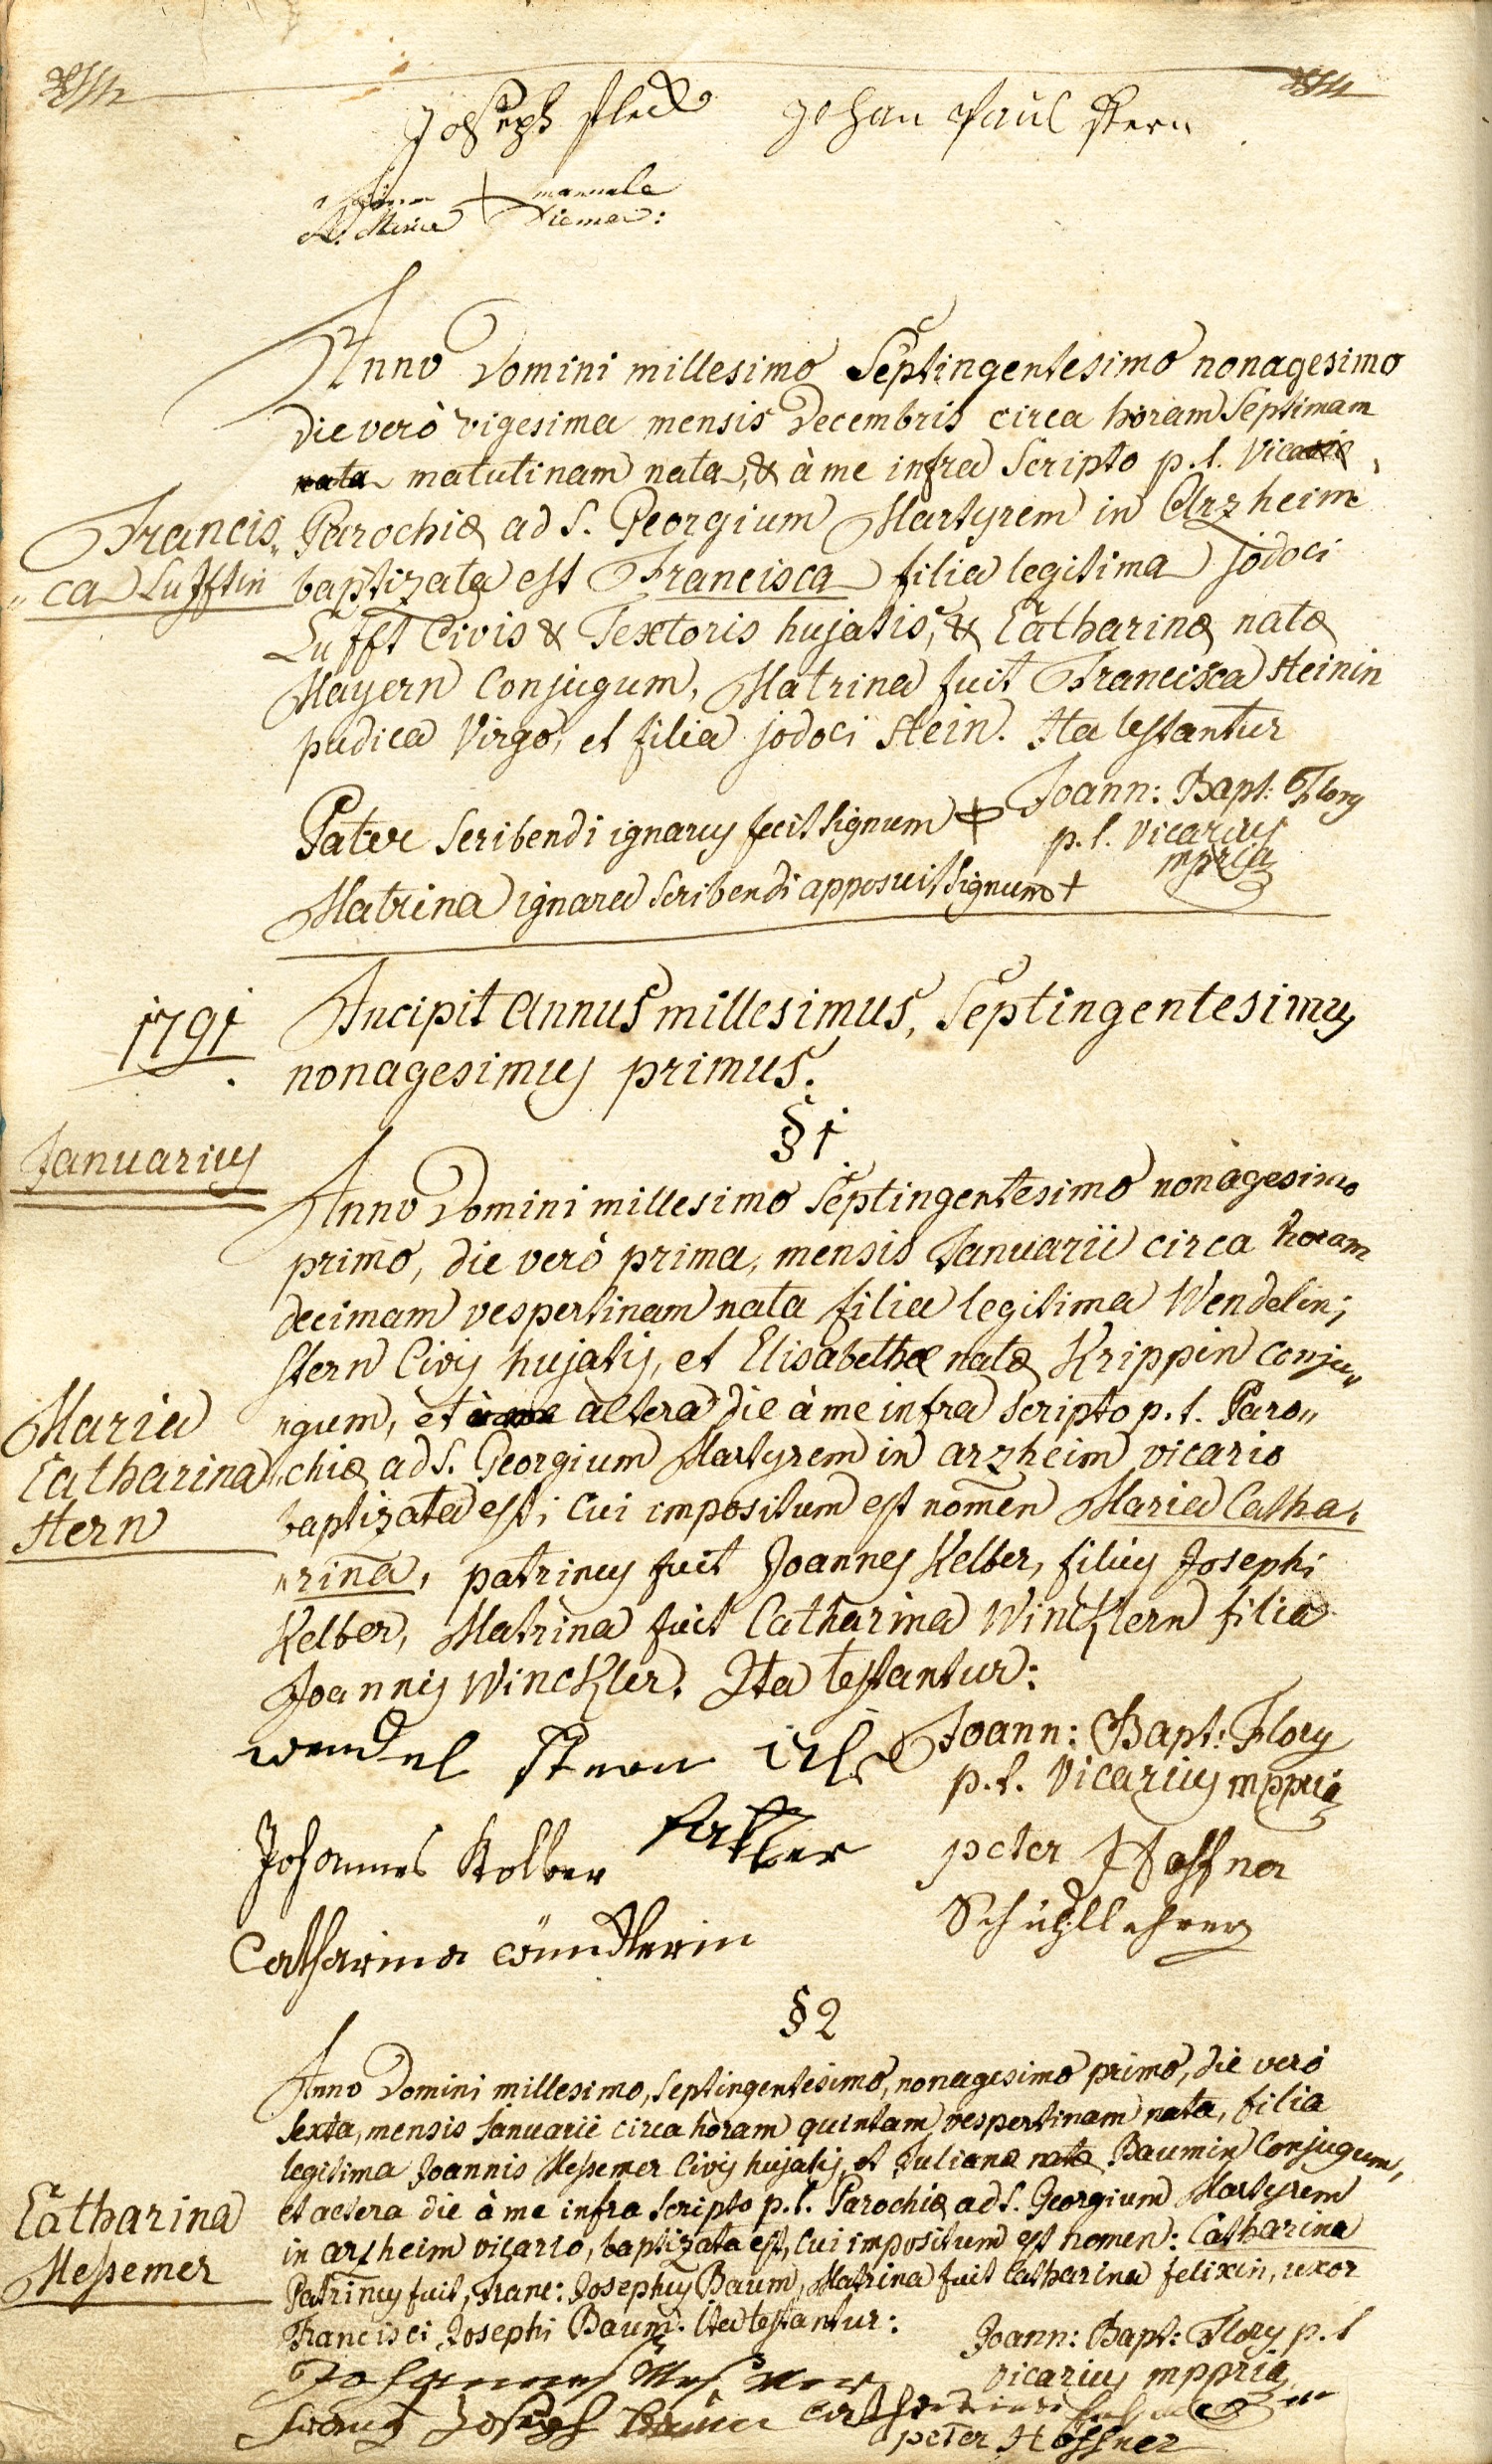 Joseph Johan Paul Stern
manuale
Anno Domini millesimo Septingentesimo nonagesimo
die verò vigesima mensis Decembris circa horam Septimam
nata matutinam nata, & à me infra Scripto p. t. Vicario
Francis„ Parochiæ ad S. Georgium Martyrem in Arzheim
„ca Lufftin baptizata est Francisca filia legitima jodoci
Lufft Civis & Textoris hujatis, & Catharinæ natæ
Mayern Conjugum, Matrina fuit Francisca Steinin
pudica Virgo, et filia jodoci Stein. Ita testantur
Joann: Bapt: Flory
Pater Scribendi ignarus fecit Signum +
p. t. Vicarius
mpria
Matrina ignara Scribendi apposuit Signum +
1791. Incipit Annus millesimus, Septingentesimus
nonagesimus primus.
§ 1
Januarius
Anno Domini millesimo Septingentesimo nonagesimo
primo, die verò prima, mensis Januarii circa horam
decimam vespertinam nata filia legitima Wendelini
Stern Civis hujatis, et Elisabethæ natæ Krippin conju„
Maria „gum, et altera die à me infra scripto p. t. Paro„
Catharina „chiæ ad S. Georgium Martyrem in arzheim vicario
Stern baptizata est, cui impositum est nomen Maria Catha„
„rina, patrinus fuit Joannes Kelber, filius Josephi
Kelber, Matrina fuit Catharina Wincklern filia
Joannis Winckler. Ita testantur:
wendel Stern als Joann: Bapt: Flory
p. t. Vicarius mppria
fatter
Johannes Kolber peter Hoffner
Schuhllehrer
Catharina
§ 2
Anno Domini millesimo, Septingentesimo, nonagesimo primo, die verò
Sexta, mensis Januarii circa horam quintam vespertinam nata, filia
legitima Joannis Meßemer Civis hujatis, et Julianæ natæ Baumin Conjugum,
Catharina et altera die à me infra Scripto p. t. Parochiæ ad S. Georgium Martyrem
in arzheim vicario, baptizata est, cui impositum est nomen: Catharina
Meßemer Patrinus fuit, Franc: Josephus Baum, Matrina fuit Catharina felixin, uxor
Francisci Josephi Baum. Ita testantur:
Joann: Bapt: Flory p. t
vicarius mppria
Johannes
Frantz Joseph Baum
peter Hoffner